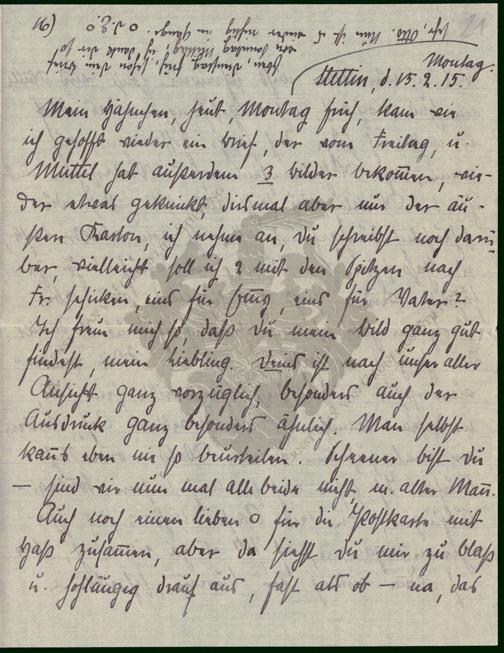 16)
Montag.
Stettin, d. 15. 2. 15.
Mein Hähnchen, heut, Montag früh, kam wie
ich gehofft wieder ein Brief, der vom Freitag, u.
Muttel hat außerdem 3 Bilder bekom̅en, wie-
der etwas geknickt, diesmal aber nur der äu-
ßere Karton, ich nehme an, Du schreibst noch darü-
ber, vielleicht soll ich 2 mit den Spitzen nach
Fr. schicken, eins für Omy, eins für Vater?
Ich freu mich so, daß Du mein Bild ganz gut
findest, mein Liebling. Deins ist nach unser aller
Ansicht ganz vorzüglich, besonders auch der
Ausdruck ganz besonders ähnlich. Man selbst
kan̅s eben nie so beurteilen. Schoener bist Du
– sind wir nun mal alle beide nicht, m. alter Man̅.
Auch noch einen lieben o für die Postkarte mit
Haß zusam̅en, aber da siehst Du mir zu blaß
u. hohläugig drauf aus, fast als ob – na, das